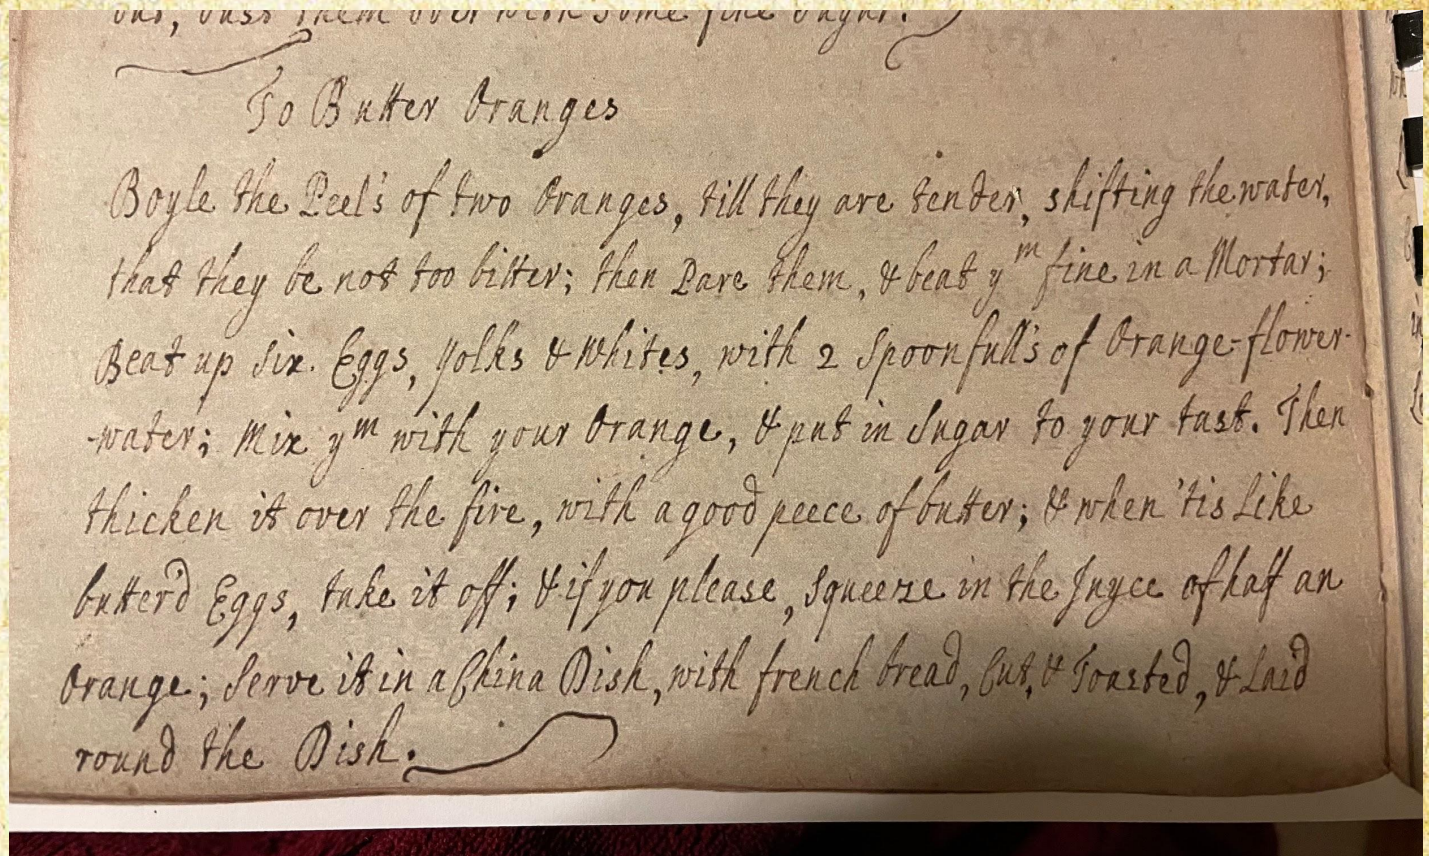 out, dust them over with some fine Sugar.
To Butter Oranges
Boyle the Peel's of two Oranges, till they are tender, shifting the water,
that they be not too bitter; then Pare them, & beat yᵐ fine in a Mortar;
Beat up six. Eggs, yolks & Whites, with 2 Spoonfull's of Orange-flower-
-water; Mix yᵐ with your Orange, & put in Sugar to your tast. Then
thicken it over the fire, with a good peece of butter; & when 'tis Like
butter'd Eggs, take it off; & if you please, Squeeze in the Juyce of half an
Orange; Serve it in a China Dish, with french bread, Cut, & Toasted, & Laid
round the Dish.